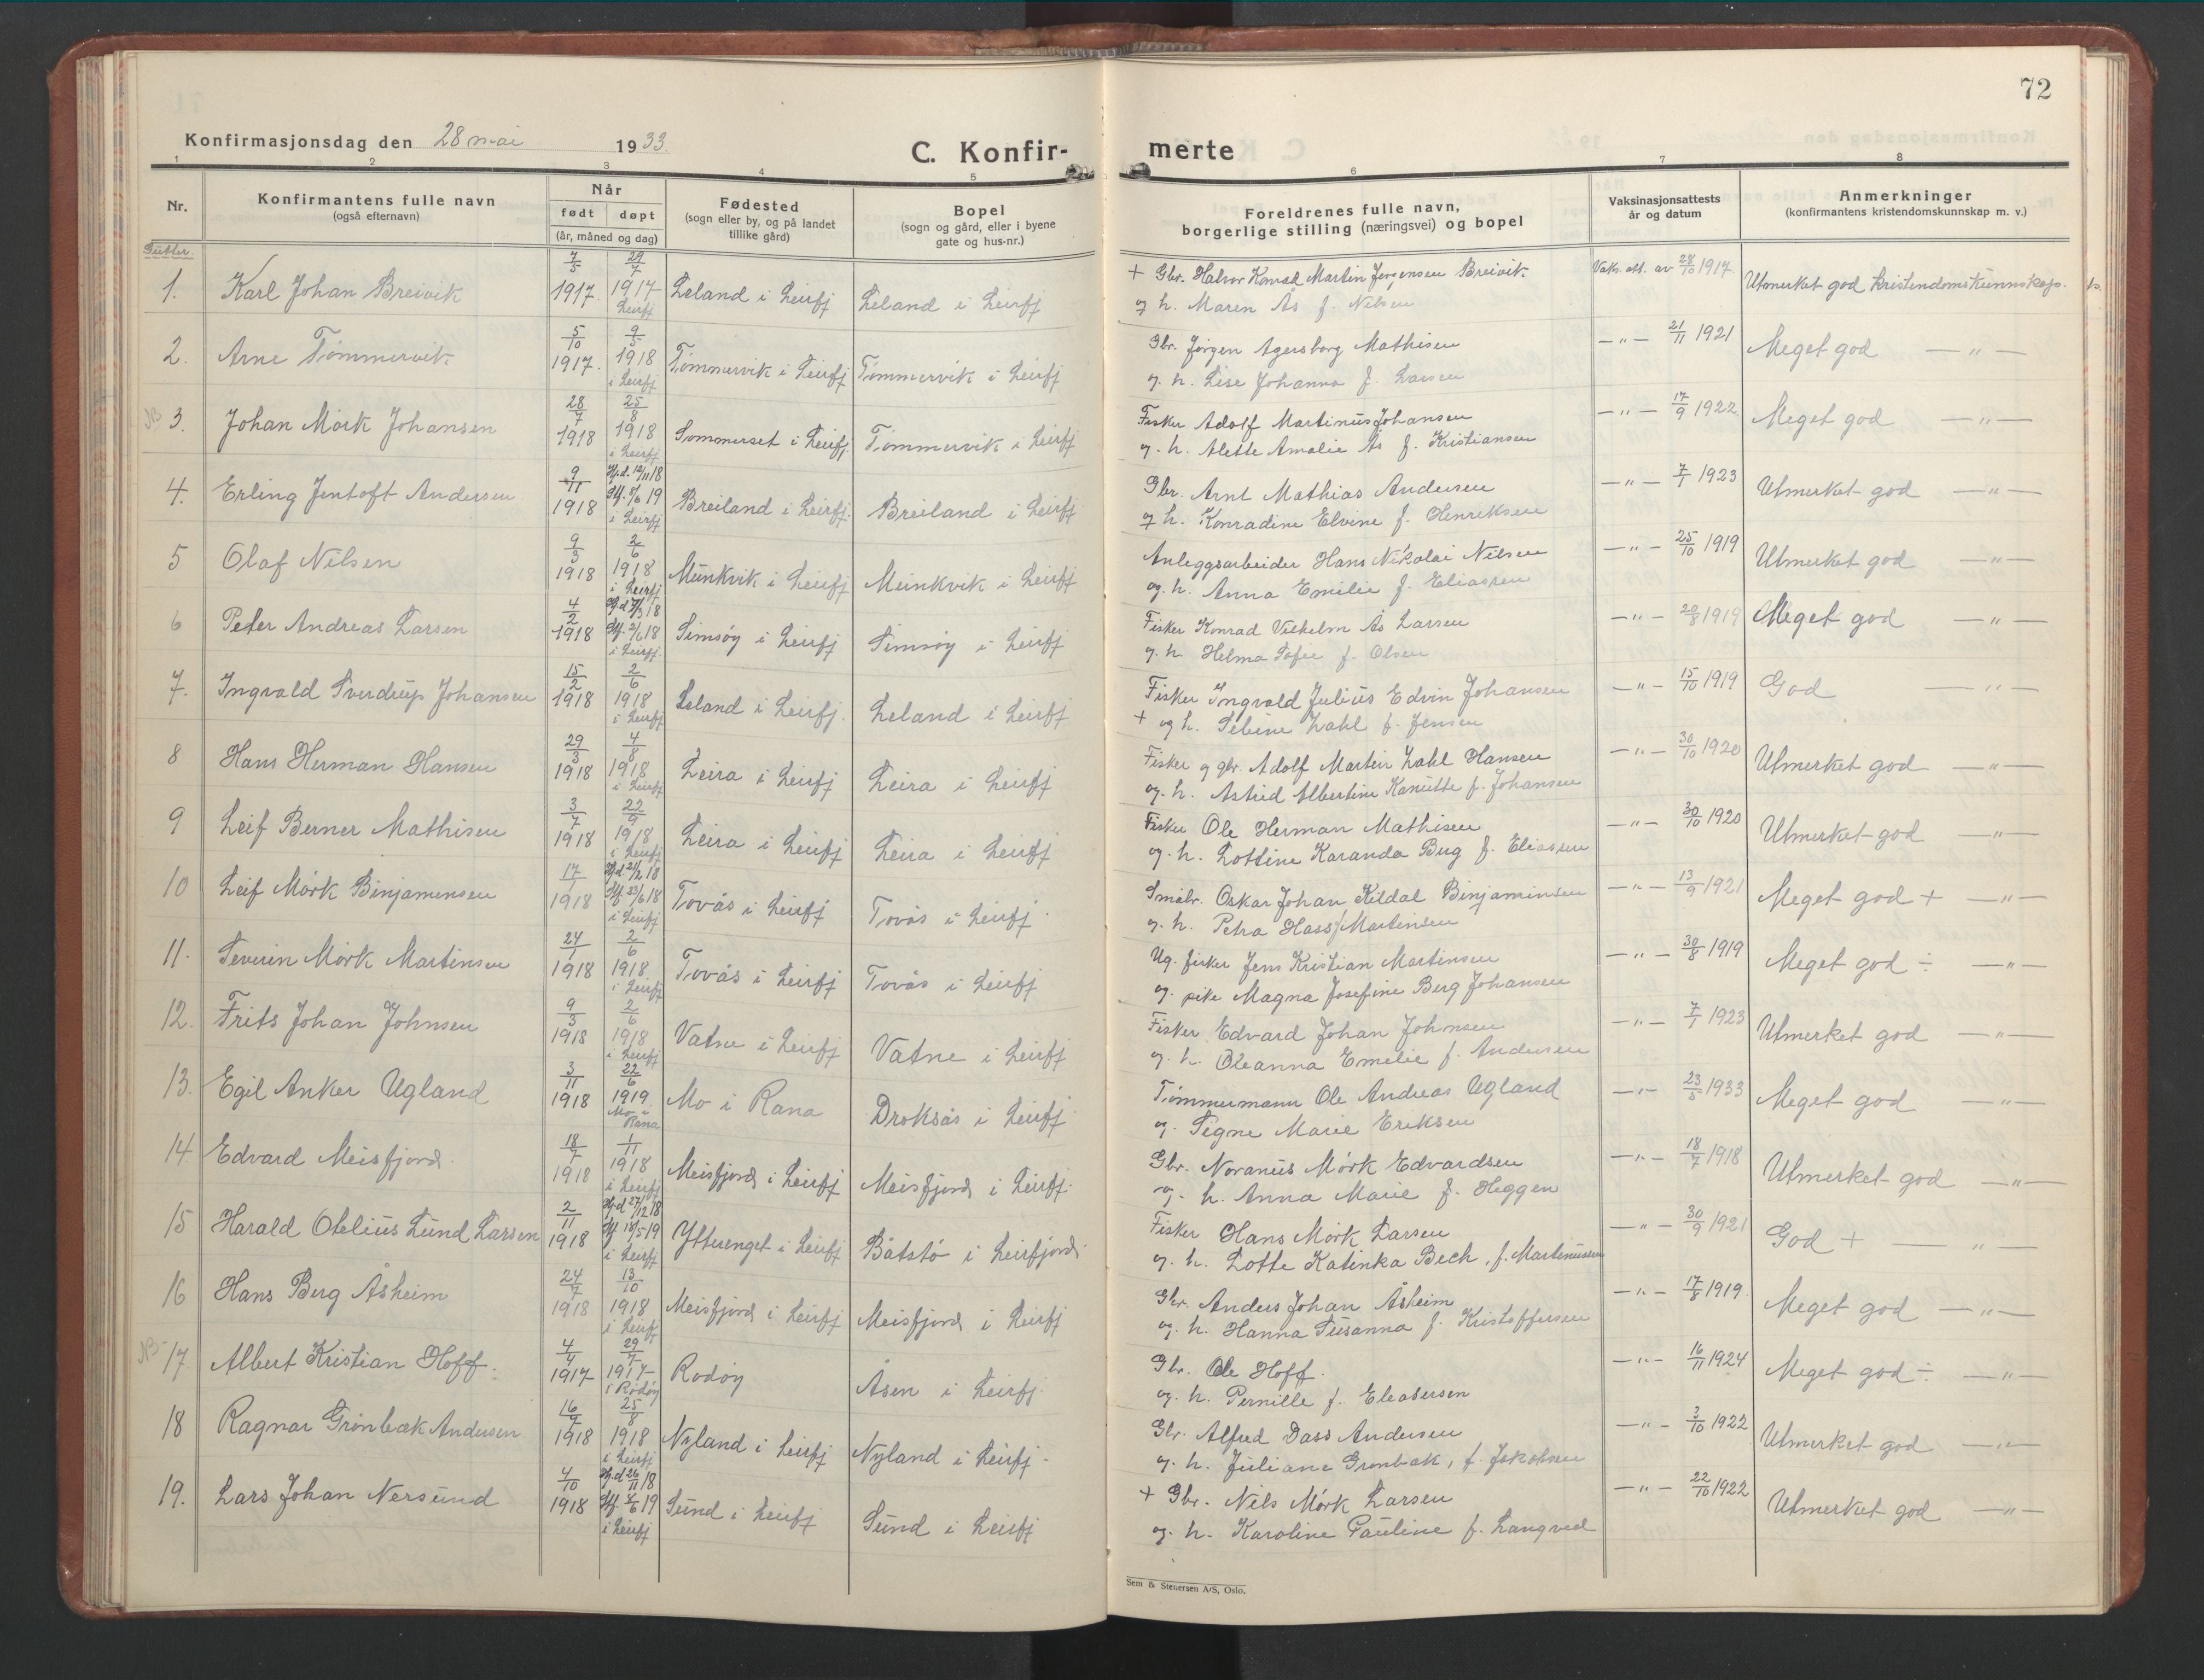 72
Konfirmasjonsdag den 28 mai 1933.
C. Konfirmerte
1 2 3 4 5 6 7 8
Nr.
Konfirmantens fulle navn (også efternavn)
Når født døpt (år, måned og dag)
Fødested (sogn eller by, og på landet tillike gård)
Bopel (sogn og gård, eller i byene gate og hus-nr.)
Foreldrenes fulle navn, borgerlige stilling (næringsvei) og bopel
Vaksinasjonsattests år og datum
Anmerkninger (konfirmantens kristendomskunnskap m. v.)
Gutter.
1. Karl Johan Breivik 7/5 1917. 29/7 1917 Leirfj Leland i Leirfj Leland i Leirfj + Gbr. Halvor Konrad Martin Jørgensen Breivik Vaks. att. av 28/10 1917 Utmerket god kristendomskunnskap.
og h. Maren Ås f. Nilsen
2. Arne Tømmervik 5/10 1917. 9/5 1918 i Leirfj Tømmervik i Leirfj Tømmervik i Leirfj Gbr. Jørgen Agersborg Mathisen —"— 21/11 1921 Meget god —"—
og h. Lise Johanna f. Larsen
NB 3. Johan Mørk Johansen 28/7 1918 25/8 1918 i Leirfj Sommerset i Leirfj. Tømmervik i Leirfj Fisker Adolf Martinus Johansen —"— 17/9 1922 Meget god —"—
og h. Alette Amalie Ås f. Kristiansen
4. Erling Jentoft Andersen 9/11 1918 Hj.d. 12/11 18 Stf. 9/6 19 i Leirfj Breiland i Leirfj. Breiland i Leirfj Gbr. Arnt Mathias Andersen —"— 7/1 1923 Utmerket god —"—
og h. Konradine Elvine f. Henriksen
5 Olaf Nilsen 9/3 1918 2/6 1918 i Leirfj Munkvik i Leirfj Munkvik i Leirfj Anleggsarbeider Hans Nikolai Nilsen —"— 25/10 1919 Utmerket god —"—
og h. Anna Emilie f. Eliassen
6 Peter Andreas Larsen 4/2 1918 Hj.d 7/3 18 Stf. 2/6 18 i Leirfj. Simsøy i Leirfj Simsøy i Leirfj Fisker Konrad Vilhelm Ås Larsen —"— 20/8 1919 Meget god —"—
og h. Helma Sofie f. Olsen
7. Ingvald Sverdrup Johansen 15/2 1918 2/6 1918 i Leirfj Leland i Leirfj. Leland i Leirfj Fisker Ingvald Julius Edvin Johansen —"— 15/10 1919 God —"—
+ og h. Sebine Zahl f. Jensen
8 Hans Herman Hansen 29/3 1918 4/8 1918 i Leirfj Leira i Leirfj Leira i Leirfj Fisker og gbr. Adolf Martin Zahl Hansen —"— 30/10 1920 Utmerket god —"—
og h. Astrid Albertine Kanutte f. Johansen
9 Leif Berner Mathisen 3/7 1918 22/9 1918 i Leirfj Leira i Leirfj Leira i Leirfj Fisker Ole Herman Mathisen —"— 30/10 1920 Utmerket god —"—
og h. Lottine Karanda Berg f. Eliassen
10 Leif Mørk Binjamensen 17/1 1918 Hj.d 21/2 18 Stf 23/6 18 i Leirfj Tovås i Leirfj Tovås i Leirfj. Småbr. Oskar Johan Kildal Binjaminsen —"— 13/9 1921 Meget god + —"—
og h. Petra Hass f. Martinsen
11. Severin Mørk Martinsen 24/1 1918 2/6 1918. i Leirfj Tovås i Leirfj Tovås i Leirfj Ug. fisker Jens Kristian Martinsen —"— 30/8 1919 Meget god ÷ —"—
og pike Magna Josefine Berg Johansen
12. Frits Johan Johnsen 9/3 1918 2/6 1918 i Leirfj Vatne i Leirfj Vatne i Leirfj Fisker Edvard Johan Johnsen —"— 7/1 1923 Utmerket god —"—
og h. Oleanna Emelie f. Andersen
13. Egil Anker Ugland 3/11 1918 22/6 1919. Mo i Rana Mo i Rana Droksås i Leirfj Tømmermann Ole Andreas Ugland —"— 23/5 1933 Meget god —"—
og Signe Marie Eriksen
14 Edvard Meisfjord. 18/7 1918 1/11 1918 i Leirfj Meisfjord i Leirfj Meisfjord i Leirfj. Gbr. Noranus Mørk Edvardsen —"— 18/7 1918 Utmerket god —"—
og h. Anna Marie f. Heggen
15 Harald Otelius Lund Larsen 2/11 1918 Hj.d 27/12 18 Stf 18/5 19 i Leirfj Ytterenget i Leirfj Båtstø i Leirfjord. Fisker Hans Mørk Larsen —"— 30/9 1921 God + —"—
og h. Lotte Katinka Bech, f. Martinussen
16 Hans Berg Åsheim 24/7 1918 13/10 1918 i Leirfj Meisfjord i Leirfj Meisfjord i Leirfj Gbr. Anders Johan Åsheim —"— 17/8 1919. Meget god —"—
og h. Hanna Susanna f. Kristoffersen
NB 17. Albert Kristian Hoff. 4/4 1917 29/7 1917 i Rødøy Rødøy Åsen i Leirfj. Gbr. Ole Hoff. —"— 16/11 1924 Meget god ÷ —"—
og h. Pernille f. Eleasersen
18 Ragnar Grønbæk Andersen 16/7 1918 25/8 1918 i Leirfj Nyland i Leirfj Nyland i Leirfj. Gbr. Alfred Dass Andersen —"— 3/10 1922 Utmerket god —"—
og h. Juliane Grønbæk, f. Jakobsen
19. Lars Johan Nersund 4/10 1918 Hj.d 26/11 18 Stf. 9/6 19 i Leirfj Sund i Leirfj Sund i Leirfj + Gbr. Nils Mørk Larsen —"— 22/10 1922 Utmerket god —"—
og h. Karoline Pauline f. Langved
Sem & Stenersen A/S, Oslo.